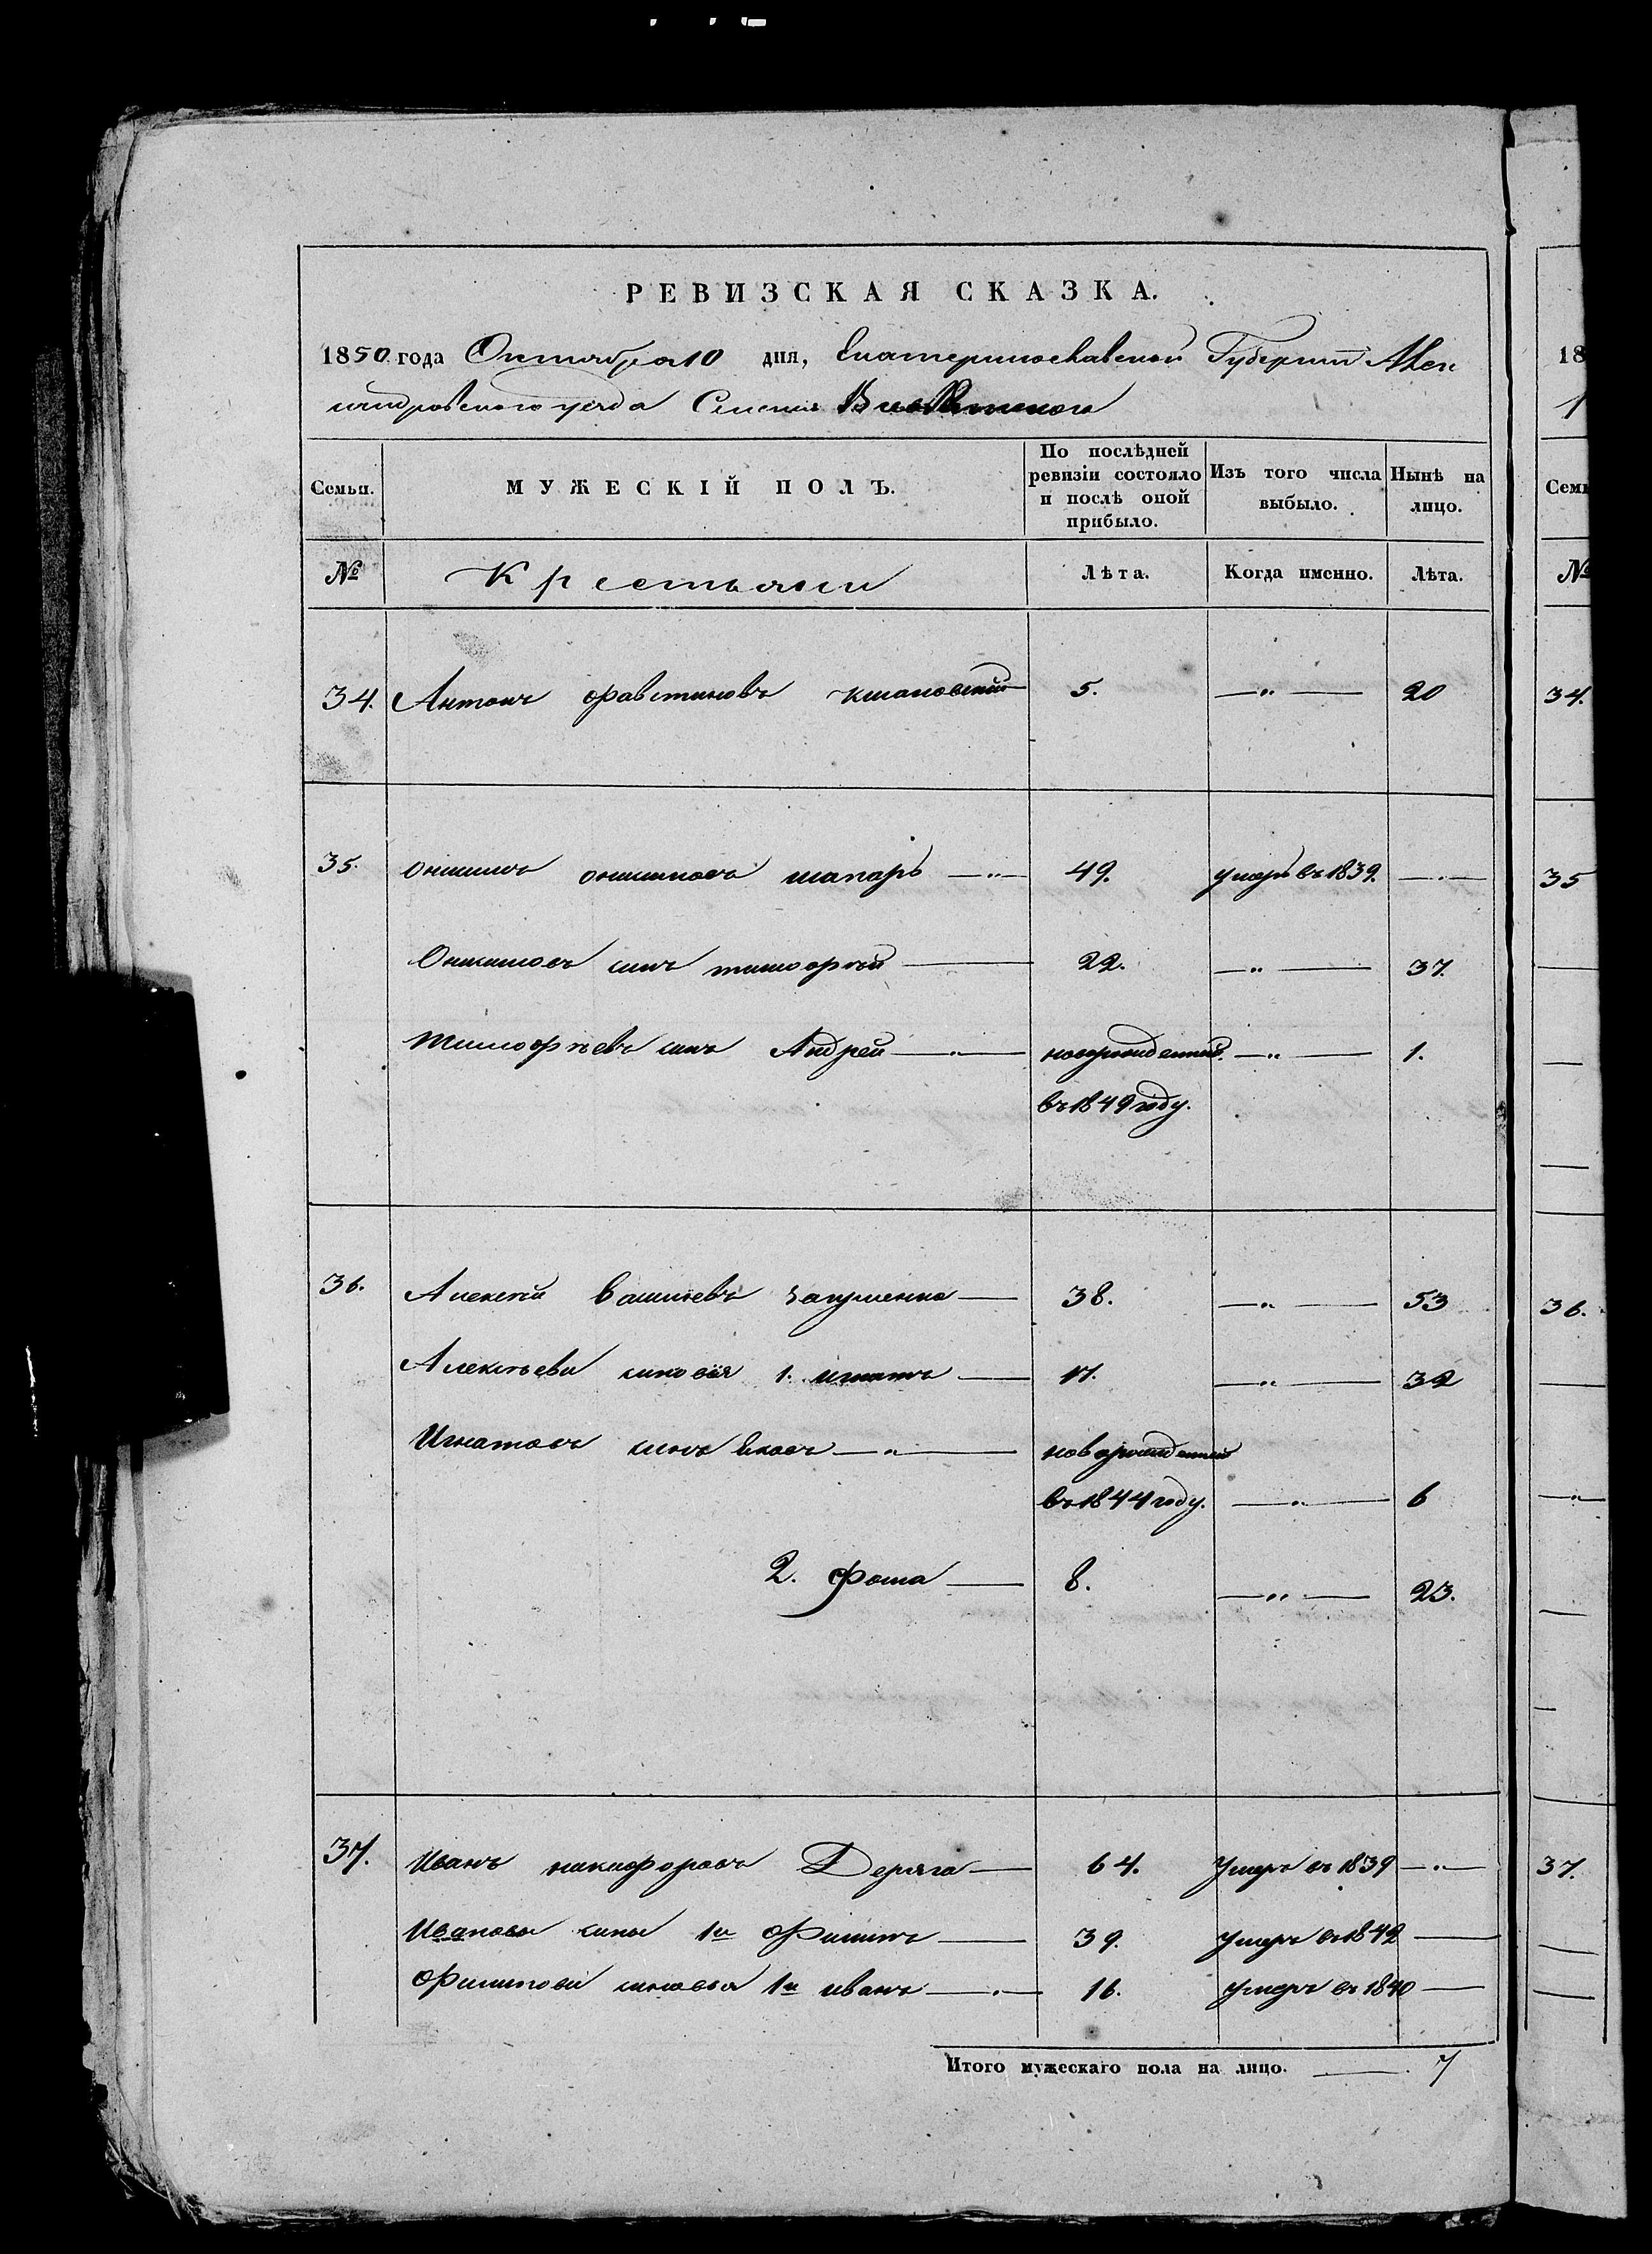 РЕВИЗСКАЯ СКАЗКА.
1850 года Октября 10 дня, Екатеринославской Губернии Алек
сандровского уезда Селения
Семьи. МУЖЕСКІЙ ПОЛЪ. По послѣдней ревизіи состояло и послѣ оной прибыло. Изъ того числа выбыло. Нынѣ на лицо.
№ Крестьяни Лѣта. Когда именно. Лѣта.
34. Антонъ Фавстиновъ 5. —„— 20
35. Онисимъ Онисимовъ шапарь —„— 49. умеръ въ 1839. —„—
Онисимовъ синъ тимофѣй — 22. —„— 37.
Тимофѣевъ синъ Андрей —„— новорожденный —„— 1.
въ 1849 году.
36. Алексѣй Васильевъ Загуменко — 38. —„— 53
Алексѣеви синовья 1. игнатъ — 17. —„— 32
Игнатовъ синъ Яковъ —„— новорожденный
въ 1844 году. —„— 6
2. Фома — 8. —„— 23.
37. Иванъ никифоровъ Деряга — 64. Умеръ въ 1839 —„—
Ивановы сины 1й Филипъ — 39. умеръ въ 1842 —
Филипови синовья 1й иванъ —„— 16. умеръ въ 1840 —
Итого мужескаго пола на лицо. — 7
18
1
Семь
№
34.
35
36.
37.